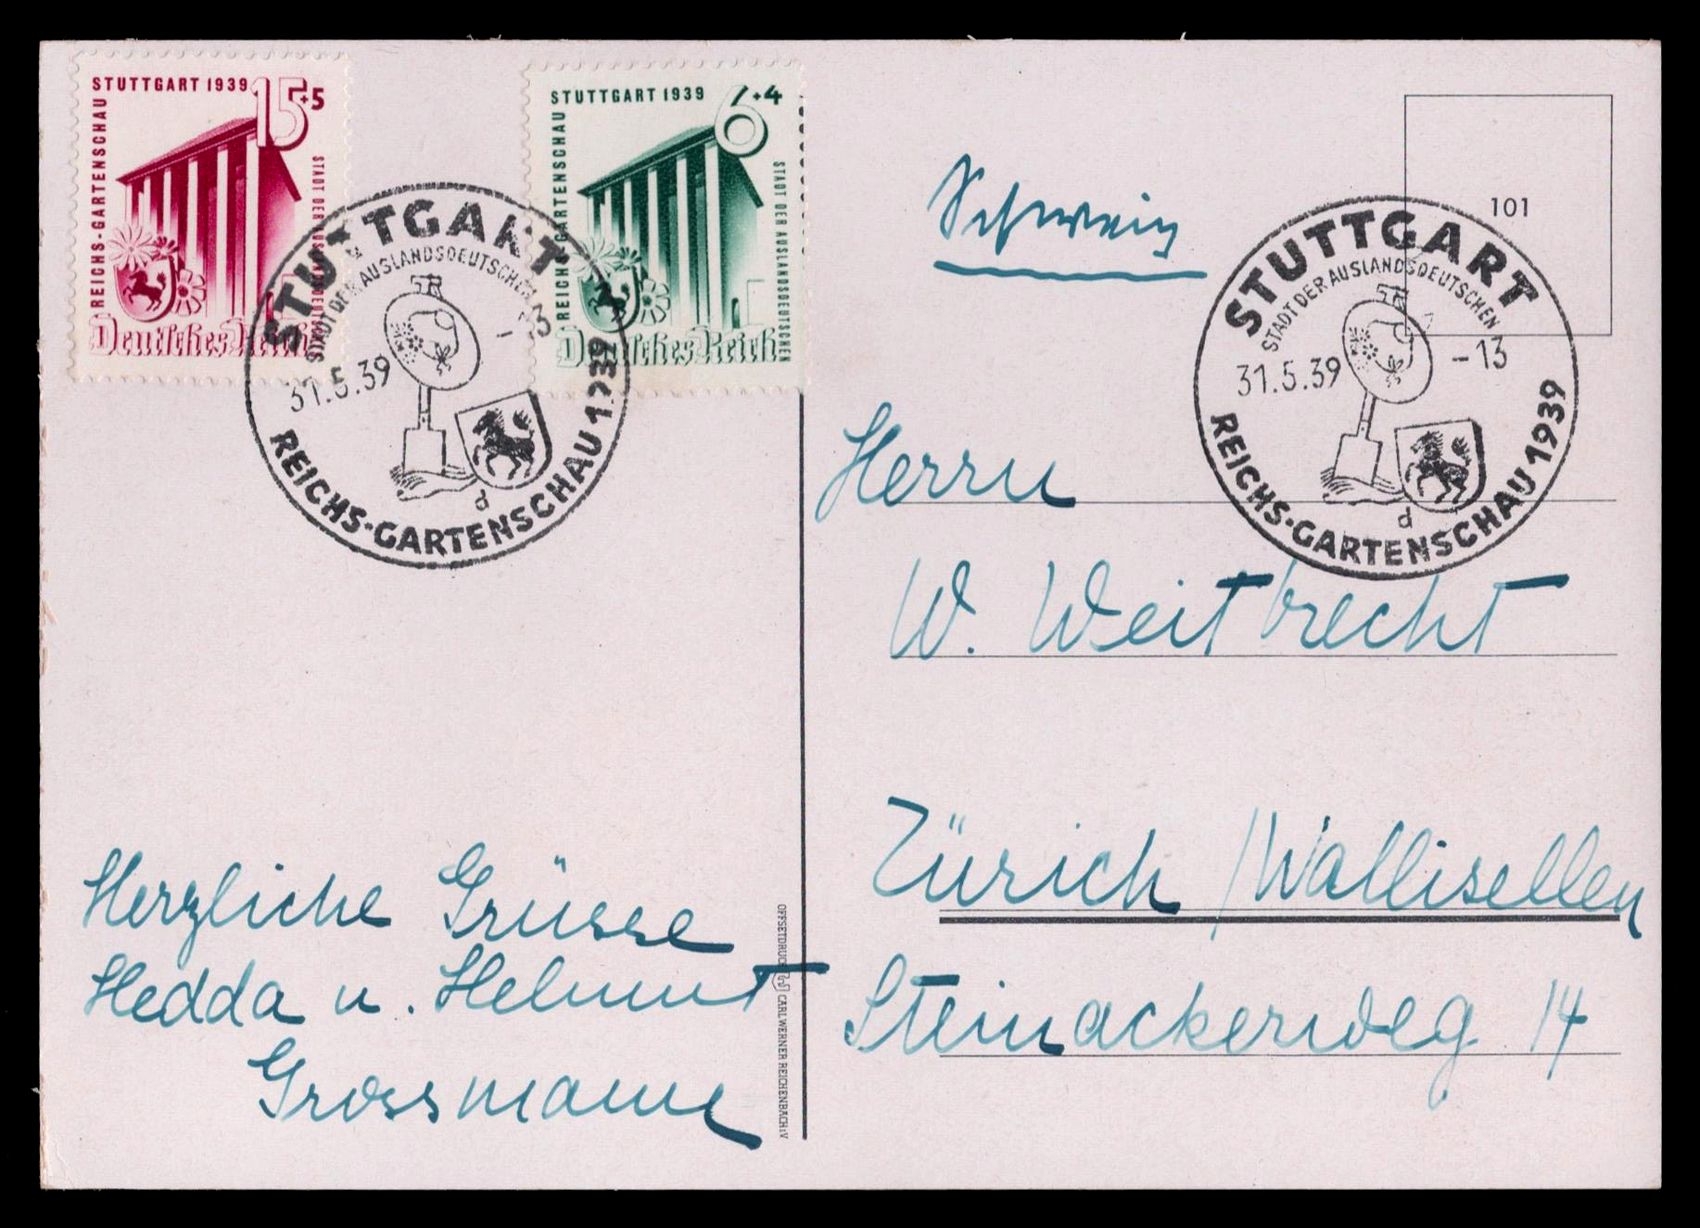 STUTTGART 1939
15+5
REICHS-GARTENSCHAU
STADT DER AUSLANDSDEUTSCHEN
Deutsches Reich
STUTTGART 1939
6+4
REICHS-GARTENSCHAU
STADT DER AUSLANDSDEUTSCHEN
Deutsches Reich
STUTTGART
STADT DER AUSLANDSDEUTSCHEN
31.5.39 -13
d
REICHS-GARTENSCHAU 1939
Schweiz
101
STUTTGART
STADT DER AUSLANDSDEUTSCHEN
31.5.39 -13
d
REICHS-GARTENSCHAU 1939
Herrn
W. Weitbrecht
Zürich / Wallisellen
Steinackerweg 14
Herzliche Grüsse
Hedda u. Helmut
Grossmann
OFFSETDRUCK CARL WERNER REICHENBACH i.V